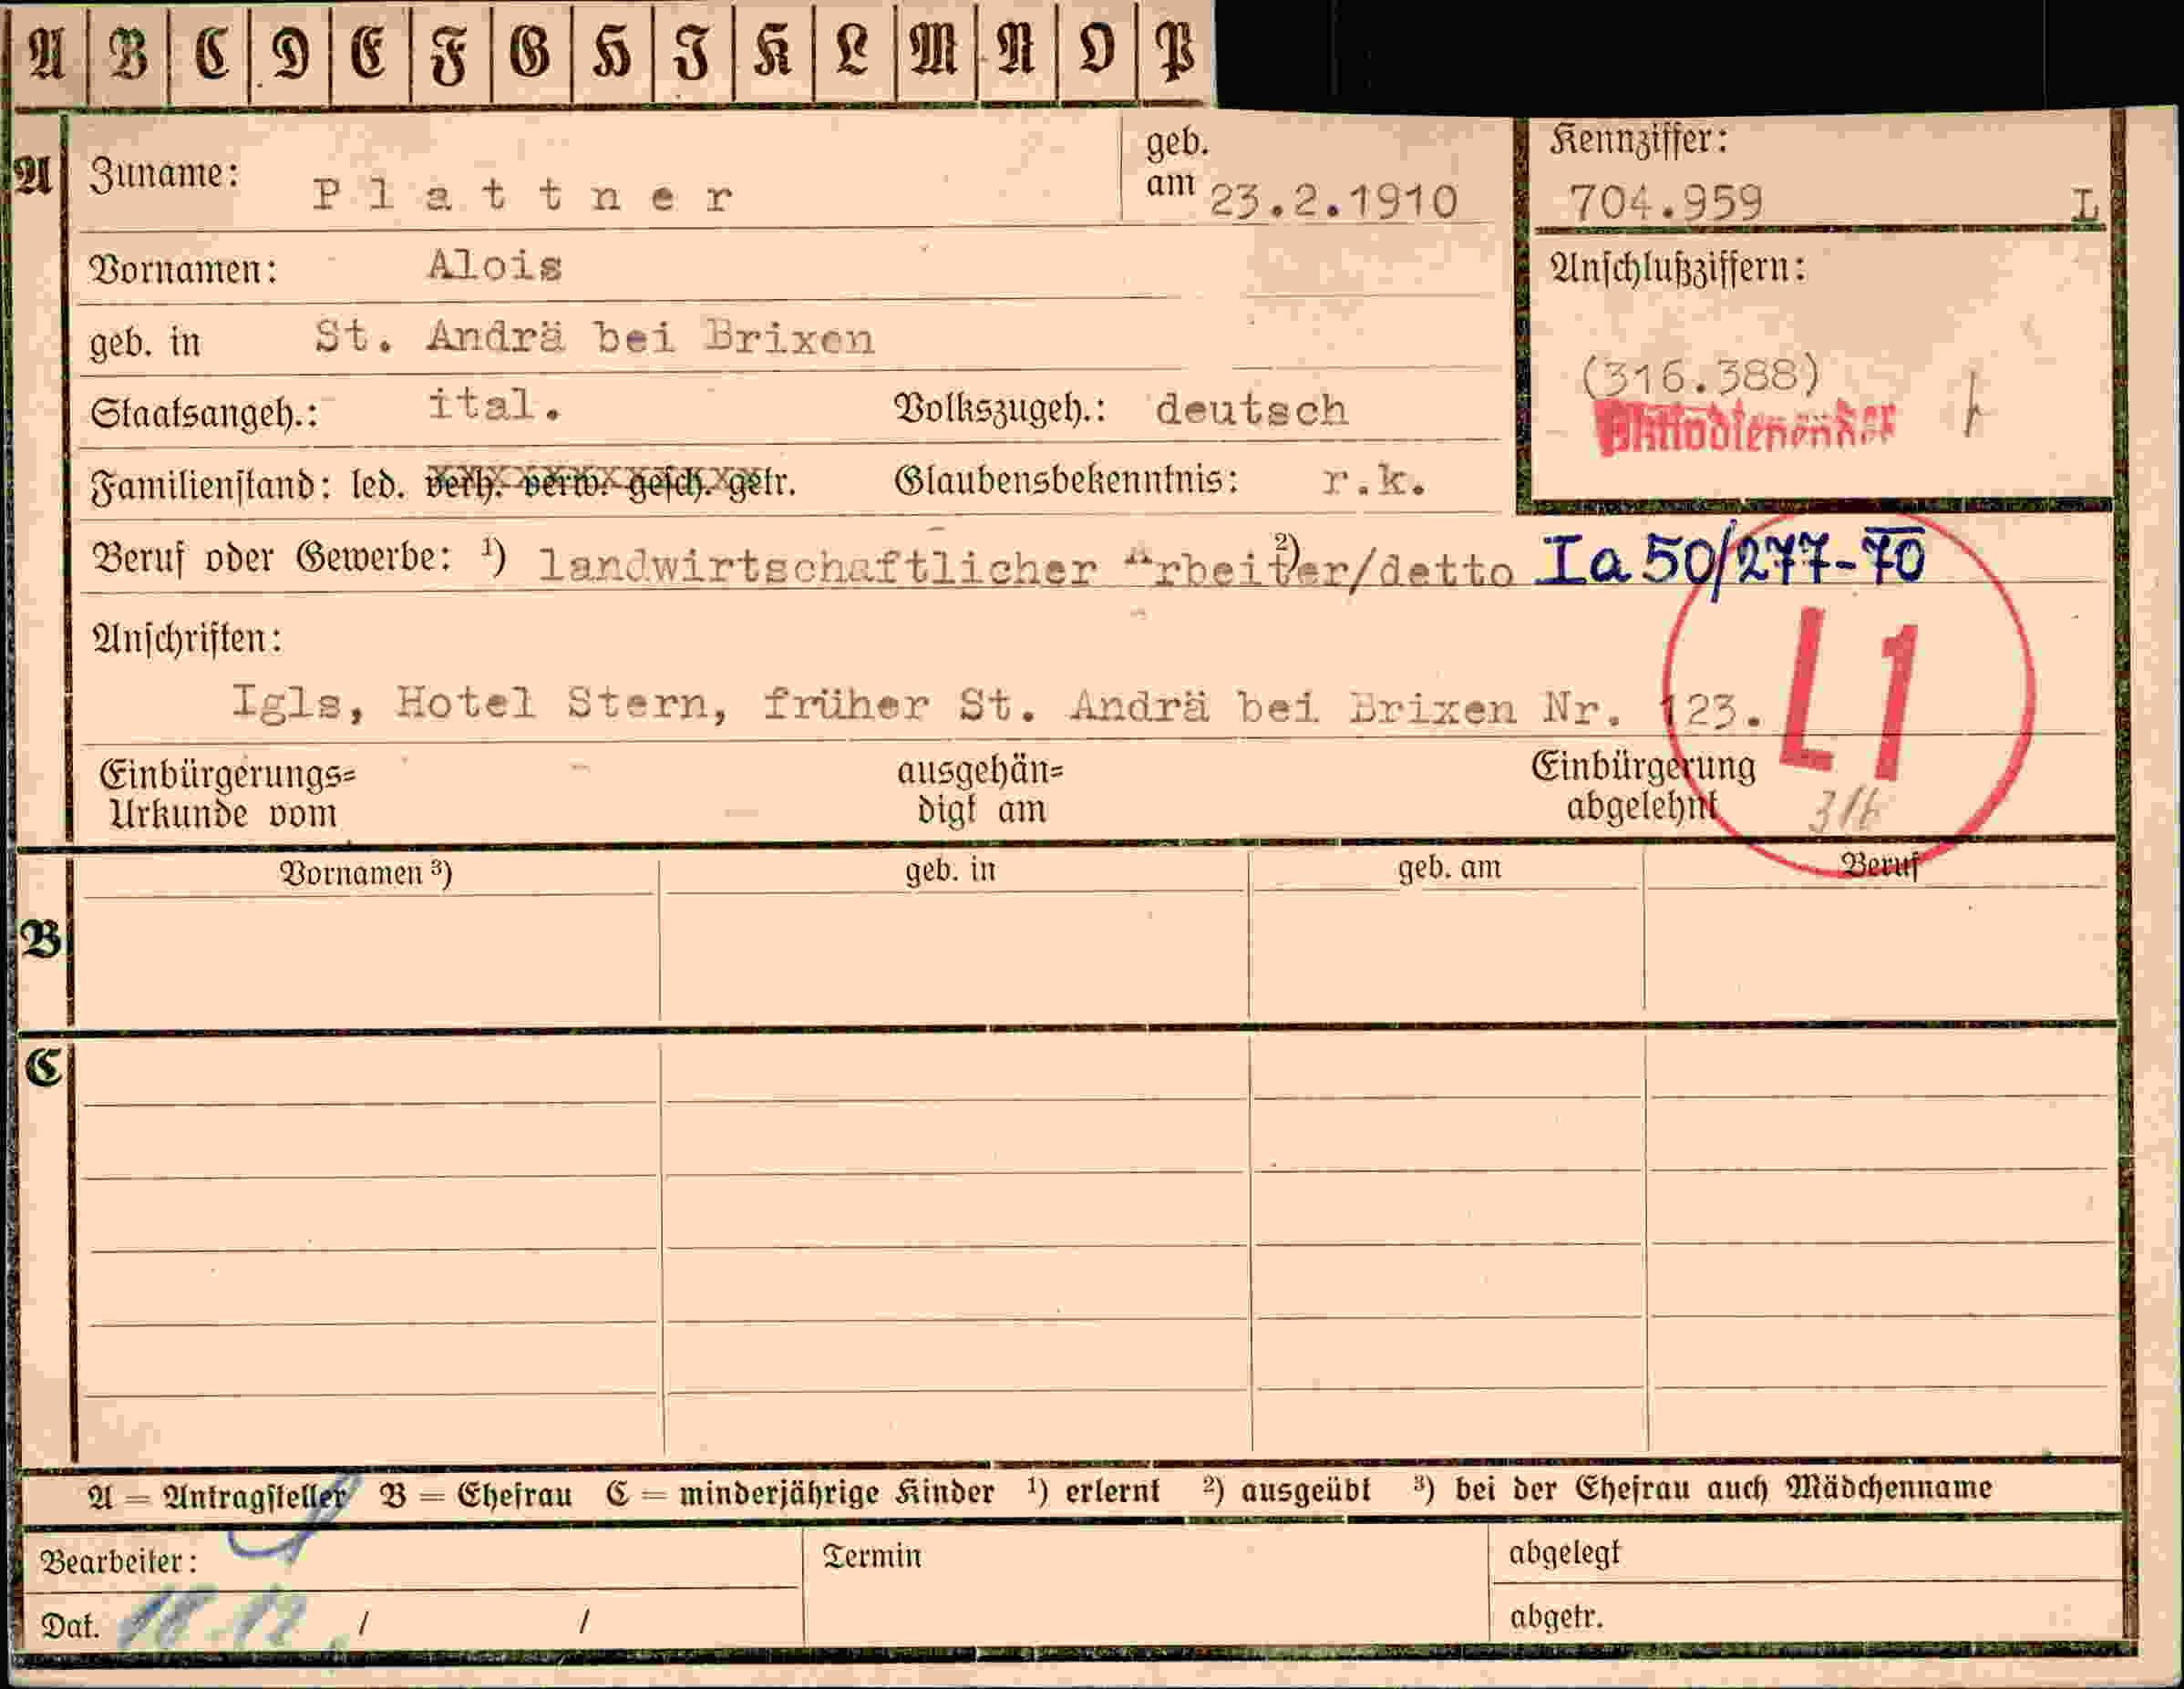 A B C D E F G H J K L M N O P
A Zuname: Plattner geb. am 23.2.1910 Kennziffer: 704.959 L
Vornamen: Alois Anschlußziffern:
geb. in St. Andrä bei Brixen
(316.388)
Staatsangeh.: ital. Volkszugeh.: deutsch
Familienstand: led. verh. verw. gesch. getr. Glaubensbekenntnis: r.k.
Beruf oder Gewerbe: ¹) landwirtschaftlicher Arbeiter/detto ²) Ia 50/277-70
Anschriften:
L1
Igls, Hotel Stern, früher St. Andrä bei Brixen Nr. 123.
Einbürgerungs= ausgehän= Einbürgerung
Urkunde vom digt am abgelehnt
Vornamen ³) geb. in geb. am Beruf
B
C
A = Antragsteller B = Ehefrau C = minderjährige Kinder ¹) erlernt ²) ausgeübt ³) bei der Ehefrau auch Mädchenname
Bearbeiter: Termin abgelegt
Dat. 18.12. / / abgetr.